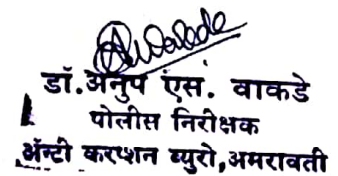 डॉ. अनुप एस. वाकडे
पोलीस निरीक्षक
अँन्टी करप्शन ब्युरो, अमरावती